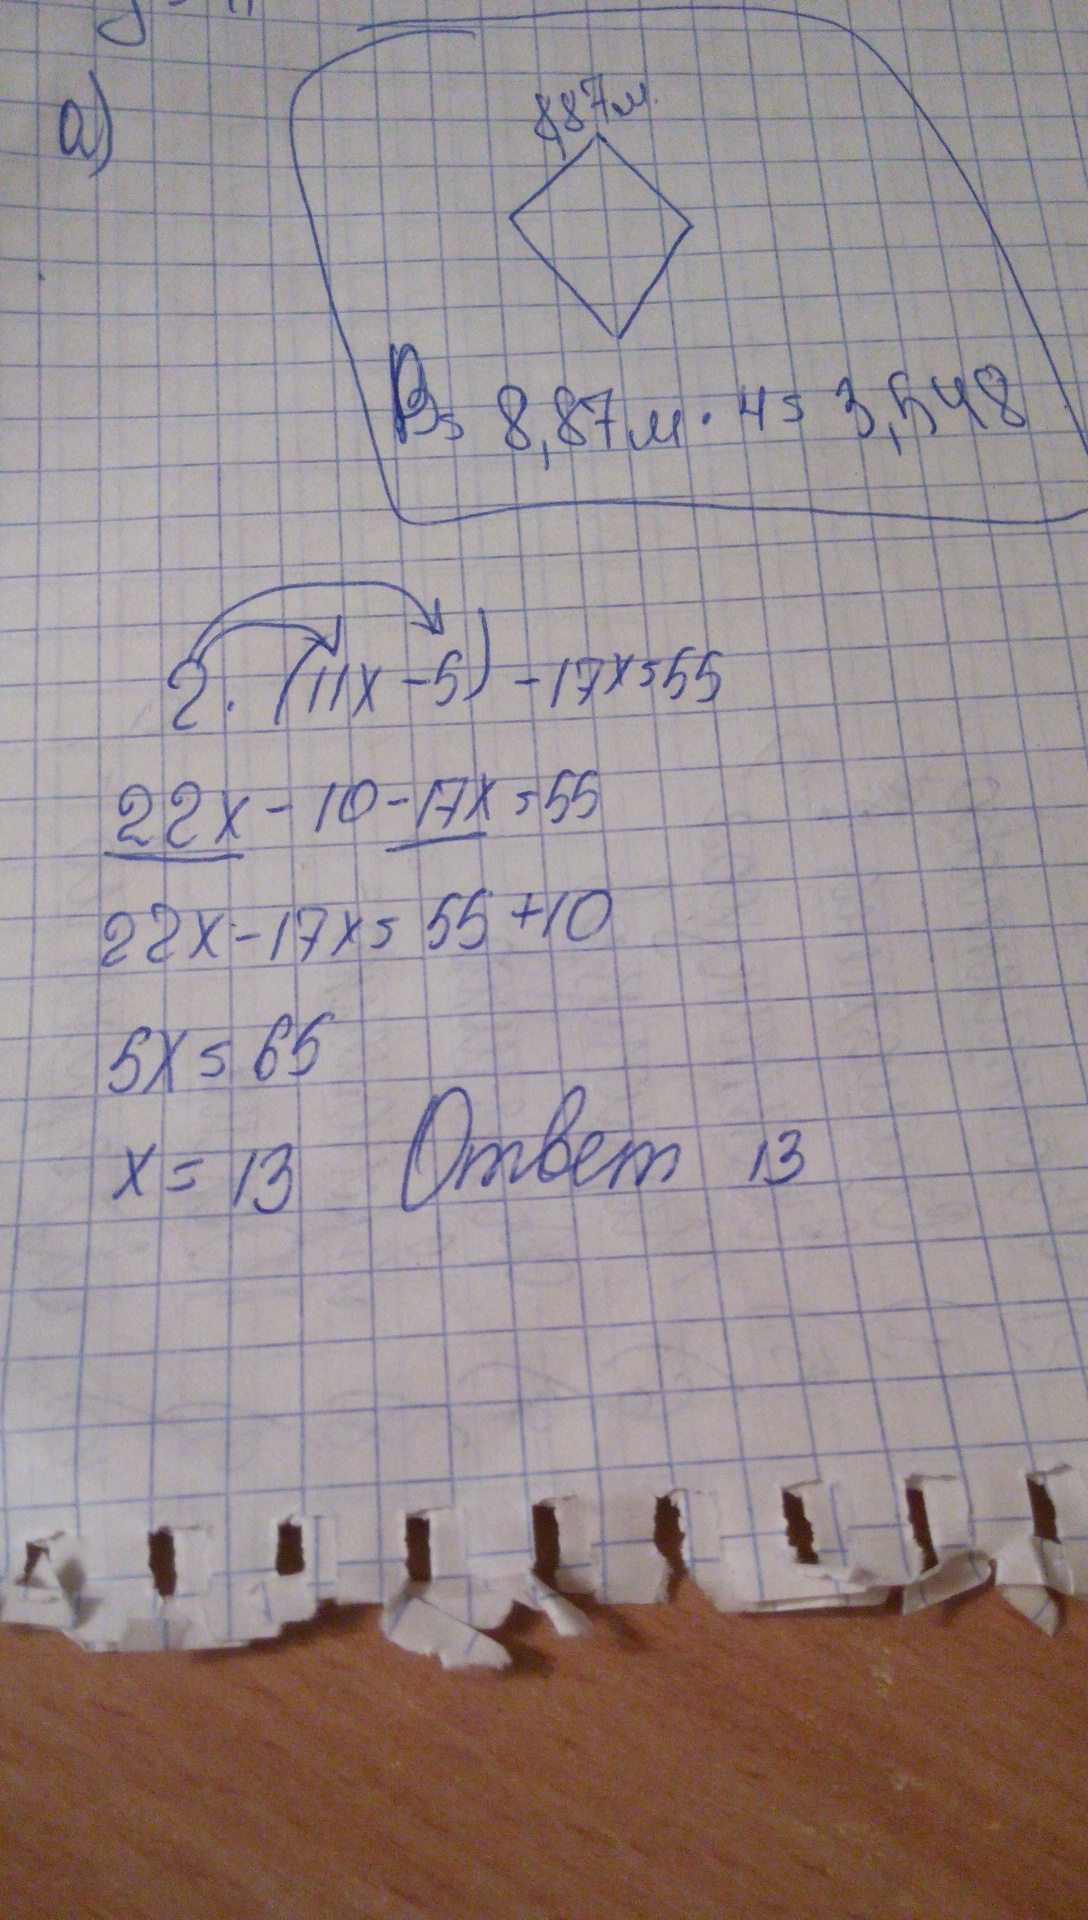 а)
8,87м.
P= 8,87м · 4= 3,548
2 · (11x - 5) - 17x = 55
22x - 10 - 17x = 55
22x - 17x = 55 + 10
5x = 65
x = 13 Ответ 13